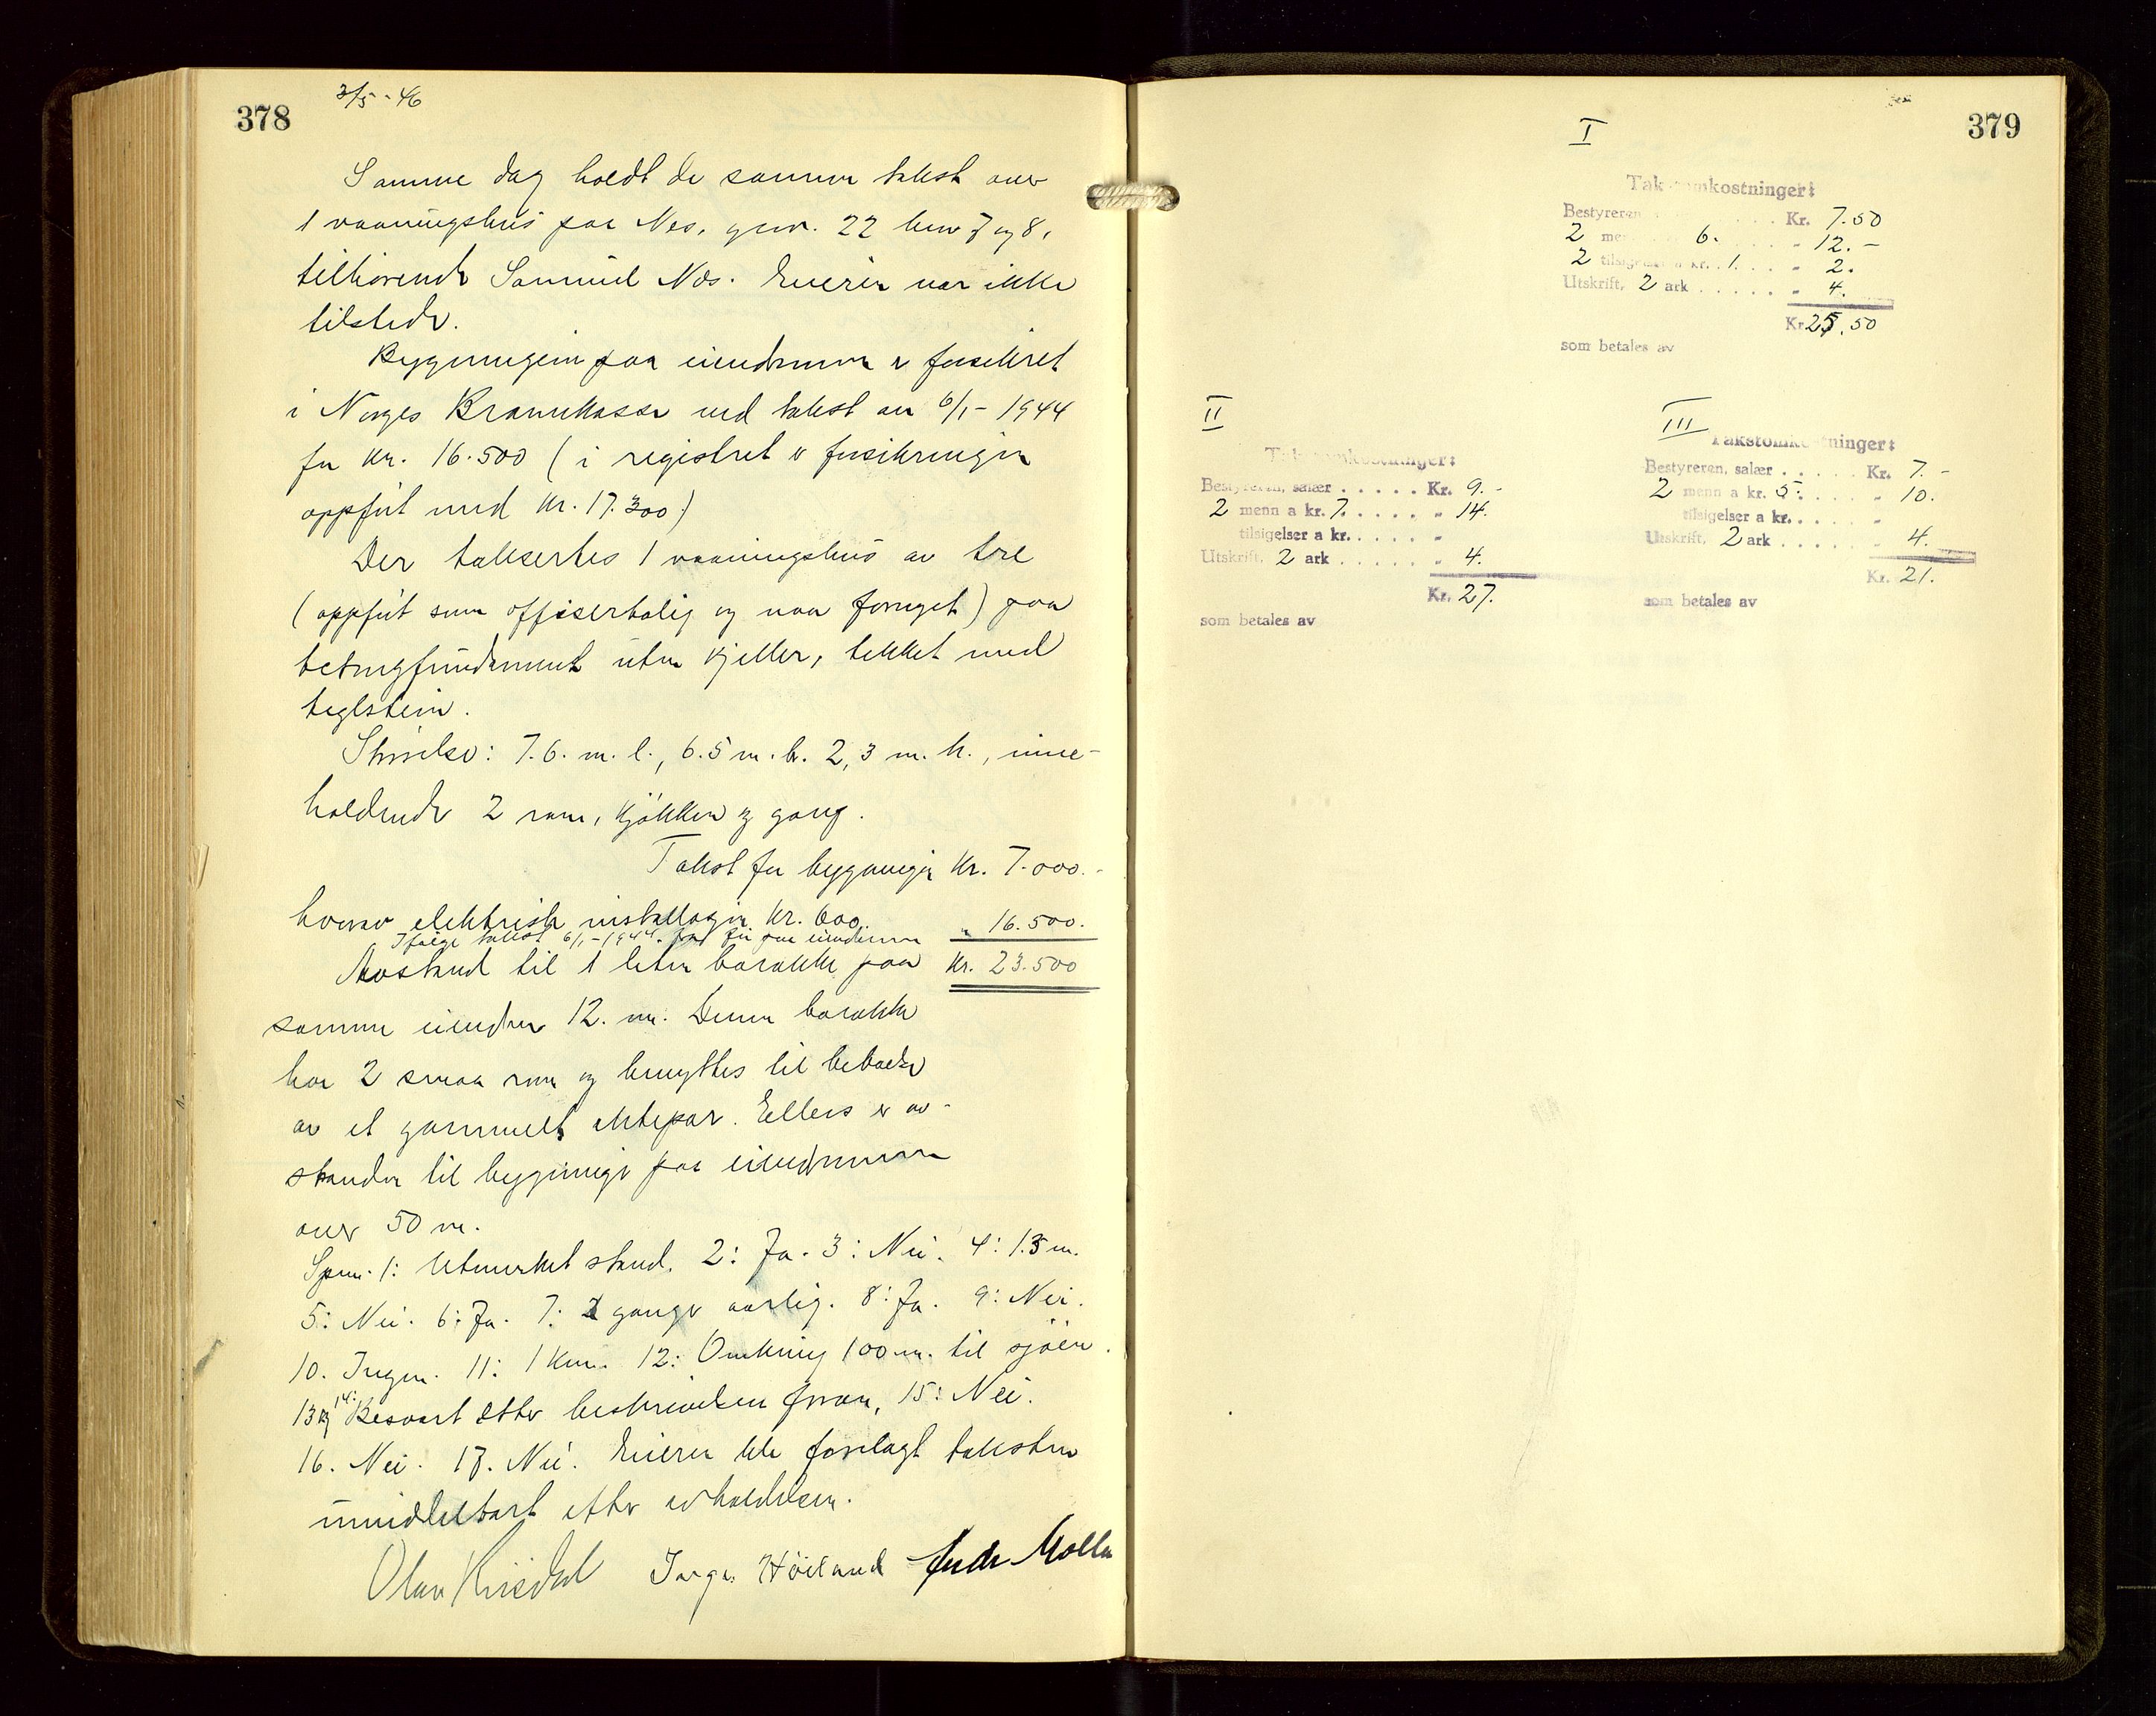 378
3/5-46
Samme dag holdt de samme takst over
1 vaaningshus paa Nes, gnr. 22 bnr 7 og 8,
tilhørende Samuel Nes. Eieren var ikke
tilstede.
Bygningene paa eiendommen er forsikret
i Norges Brannkasse ved takst av 6/1-1944
for kr. 16.500 (i registret er forsikringen
oppført med kr. 17.300)
Der takseertes 1 vaaningshus av tre
(oppført som offisersbolig og var fornyet) paa
betongfundament uten kjeller, tekket med
teglstein.
Størrelse: 7.6. m. l., 6.5 m. br. 2,3 m. h., inne-
holdende 2 rom, kjøkken og gang.
Takst for bygningen kr. 7.000.-
hvorav elektrisk installasjon kr. 600.
Ifølge takst 6/1-1944 før paa eiendommen " 16.500.
Avstand til 1 liten barakke paa Kr. 23.500
samme eiendom 12. m. Denne barakke
har 2 smaa rom og benyttes til beboelse
av et gammelt ektepar. Ellers er av-
standen til bygninger paa eiendommen
over 50 m.
Spm. 1: Utmerket stand. 2: Ja. 3: Nei. 4: 1.3 m.
5: Nei. 6: Ja. 7: 2 ganger aarlig. 8: Ja. 9: Nei.
10. Ingen. 11: 1 km. 12: Omkring 100 m. til sjøen.
13 og 14: Besvart etter beskrivelsen foran, 15: Nei.
16. Nei. 17. Nei. Eieren ble forelagt taksten
umiddelbart etter avholdelsen.
Olav Inga Høiland Molla
379
I
Takstomkostninger:
Bestyreren . . . . Kr. 7.50
2 me 6. . . . " 12.-
2 tilsigelser a kr. 1. . . . " 2.
Utskrift, 2 ark . . . . . " 4.
Kr. 25.50
som betales av
II
Takstomkostninger:
Bestyreren, salær . . . . . Kr. 9.-
2 menn a kr. 7. . . . . " 14.
tilsigelser a kr. . . . . "
Utskrift, 2 ark . . . . . " 4.
Kr. 27.
som betales av
III
Takstomkostninger:
Bestyreren, salær . . . . . Kr. 7.-
2 menn a kr. 5. . . . . " 10.
tilsigelser a kr. . . . . "
Utskrift, 2 ark . . . . . " 4.
Kr. 21.
som betales av